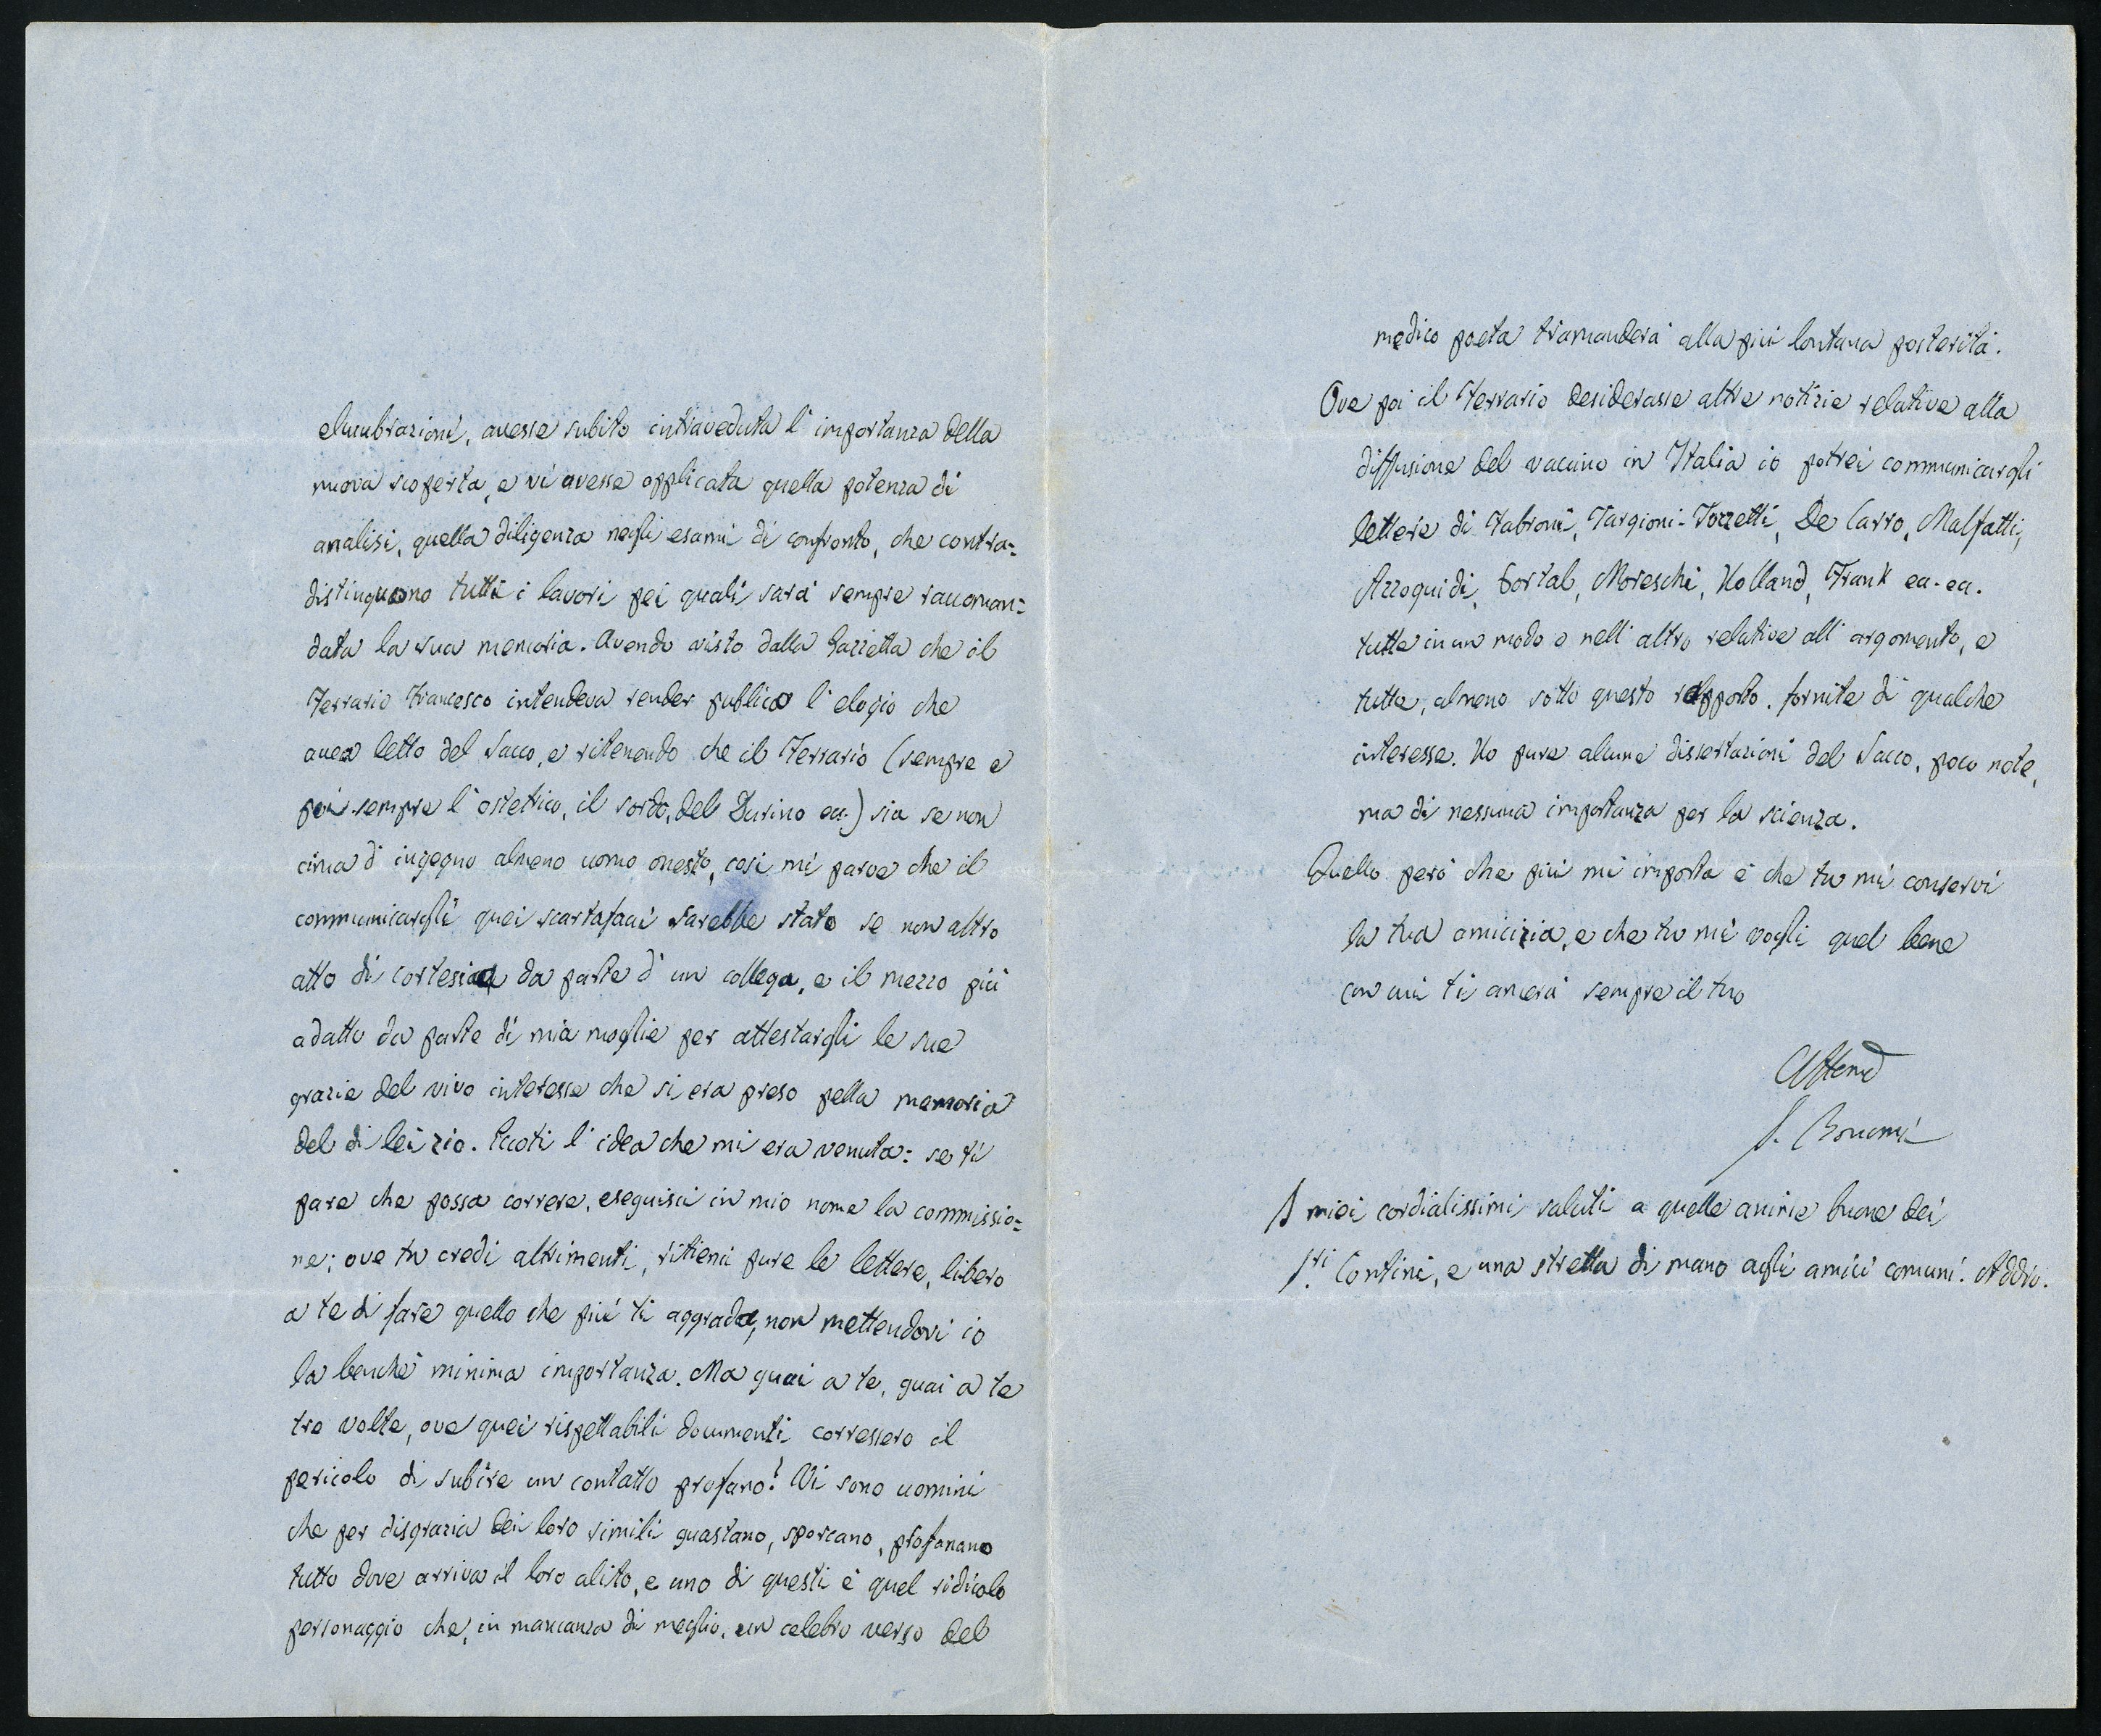 elucubrazioni, avesse subito intraveduta l'importanza della
nuova scoperta, e vi avesse applicata quella potenza di
analisi, quella diligenza negli esami di confronto, che contra=
distinguono tutti i lavori pei quali sarà sempre raccoman=
data la sua memoria. Avendo visto dalla Gazzetta che il
Ferrario Francesco intendeva render publico l'elogio che
avea letto del Sacco, e ritenendo che il Ferrario (sempre e
poi sempre l'ostetrico, il sordo, del Durino ec.) sia se non
cima d'ingegno almeno uomo onesto, così mi parve che il
communicargli quei scartafacci sarebbe stato se non altro
atto di cortesia da parte d'un collega, e il mezzo più
adatto da parte di mia moglie per attestargli le sue
grazie del vivo interesse che si era preso pella memoria
del di lei zio. Eccoti l'idea che mi era venuta: se ti
pare che possa correre, eseguisci in mio nome la commissio=
ne; ove tu credi altrimenti, ritieni pure le lettere, libero
a te di fare quello che più ti aggrada, non mettendovi io
la benchè minima importanza. Ma guai a te, guai a te
tre volte, ove quei rispettabili documenti corressero il
pericolo di subire un contatto profano! Vi sono uomini
che per disgrazia dei loro simili guastano, sporcano, profanano
tutto dove arriva il loro alito, e uno di questi è quel ridicolo
personaggio che, in mancanza di meglio, un celebre verso del
medico poeta tramanderà alla più lontana posterità.
Ove poi il Ferrario desiderasse altre notizie relative alla
diffusione del vaccino in Italia io potrei communicargli
lettere di Fabroni, Targioni-Tozzetti, De Carro, Malfatti,
Azzoguidi, Portal, Moreschi, Holland, Frank ec. ec.
tutte in un modo o nell'altro relative all'argomento, e
tutte, almeno sotto questo rapporto, fornite di qualche
interesse. Ho pure alcune dissertazioni del Sacco, poco note,
ma di nessuna importanza per la scienza.
Quello però che più mi importa è che tu mi conservi
la tua amicizia, e che tu mi vogli quel bene
con cui ti amerà sempre il tuo
S. Bonomi
I miei cordialissimi saluti a quelle anime buone dei
Sri Contini, e una stretta di mano agli amici comuni. Addio.